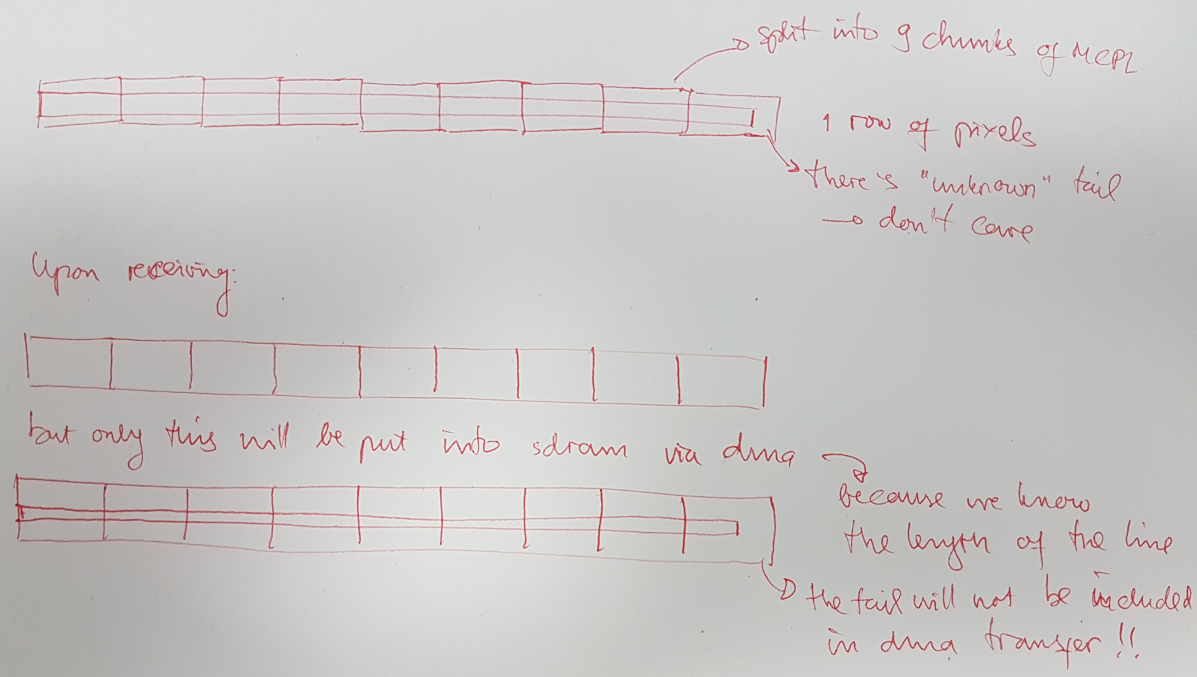 split into 9 chunks of MCPL
1 row of pixels
there's "unknown" tail
→ don't care
Upon receiving:
but only this will be put into sdram via dma
because we know
the length of the line
the tail will not be included
in dma transfer!!